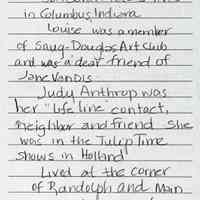 in Columbus, Indiana
Louise was a member
of Saug-Douglas Art Club
and was a dear friend of
Jane VanDis
Judy Anthrop was
her "life line" contact,
neighbor and friend She
was in the Tulip Time
shows in Holland
Lived at the corner
of Randolph and Main